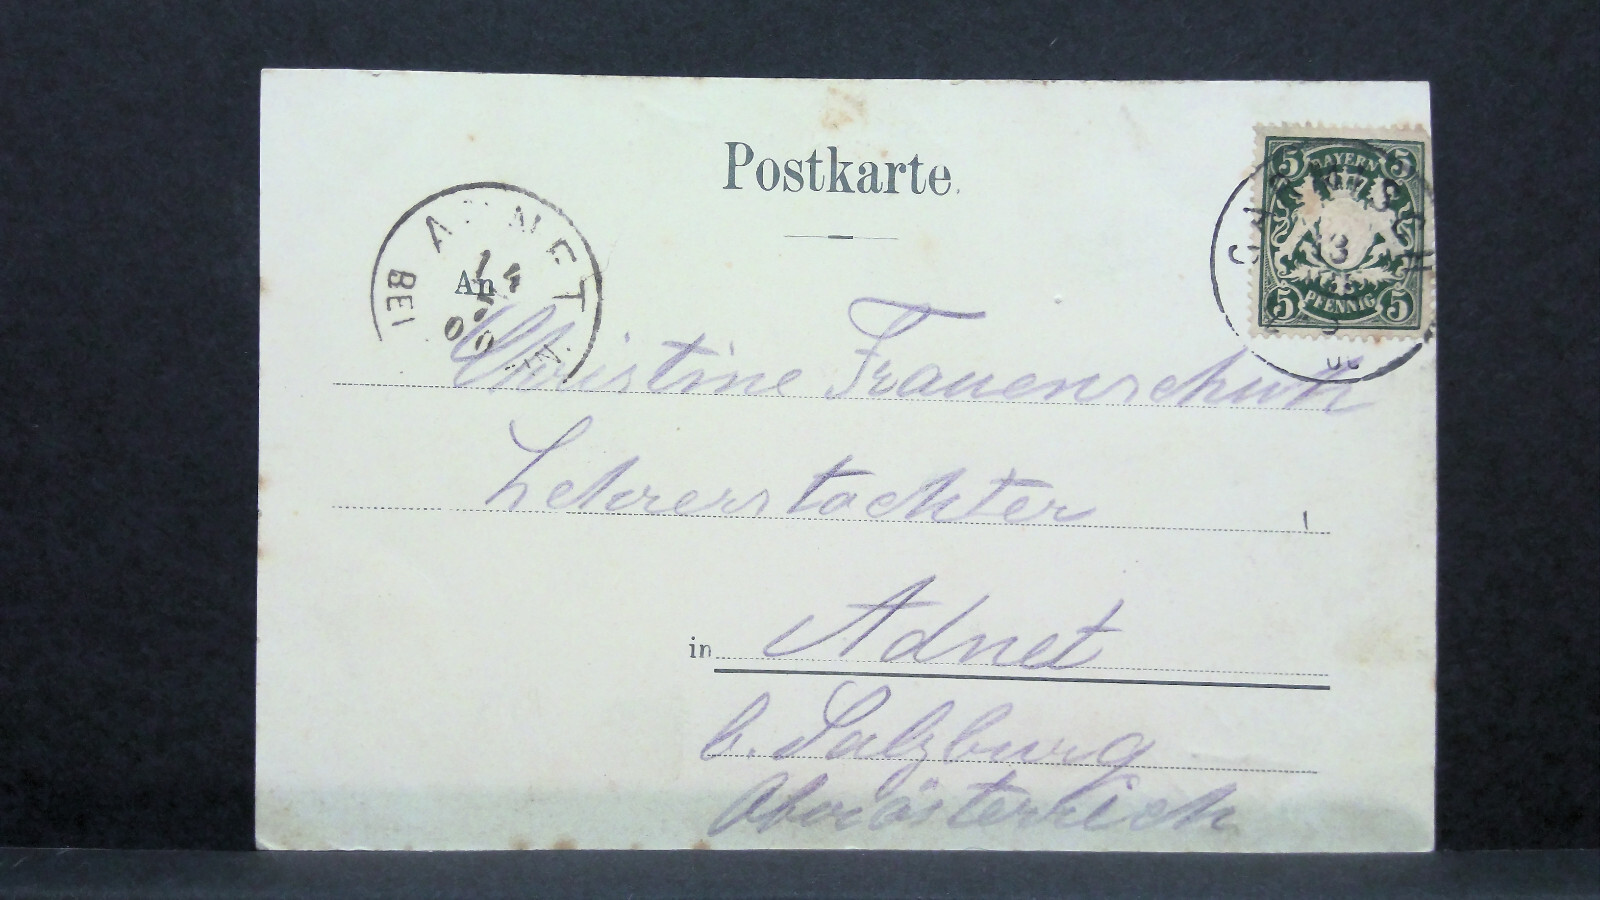 Postkarte.
5 BAYERN 5
5 PFENNIG 5
ADNET
BEI
14
5
00
An
Christine Frauenschuh
Lehrerstochter
in Adnet
b. Salzburg
Oberösterreich